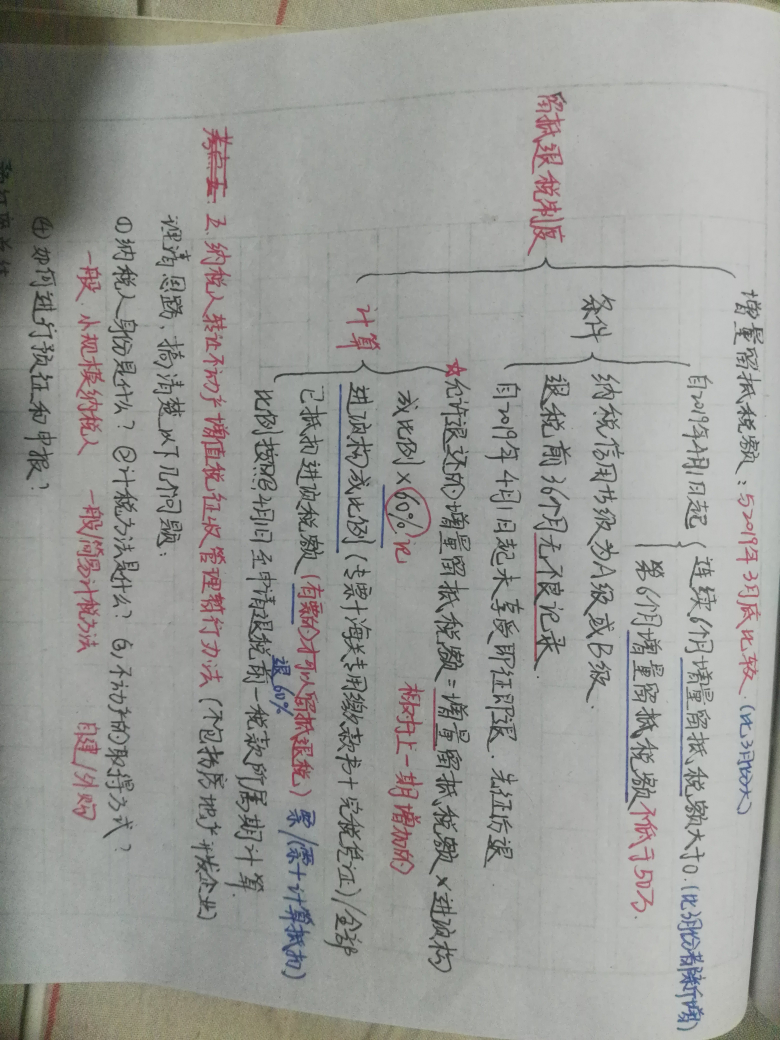 增量留抵税额：与2019年3月底比较.(比3月份大)
自2019年4月1日起
连续6个月增量留抵税额大于0.
第6个月增量留抵税额不低于50万.
留抵退税制度
条件
纳税信用等级为A级或B级.
退税前36个月无不良记录.
自2019年4月1日起未享受即征即退.先征后退
计算
☆允许退还的增量留抵税额=增量留抵税额×进项构
成比例×60%
相对上一期增加的
进项构成比例(专票+海关专用缴款书+完税凭证)/全部
已抵扣进项税额(有票的才可以留抵退税)票/(票+计算抵扣)
退60%
比例按照4月1日至申请退税前一税款所属期计算.
考点五 2.纳税人转让不动产增值税征收管理暂行办法(不包括房地产开发企业)
理清思路,搞清楚以下几个问题:
①纳税人身份是什么?②计税方法是什么?不动产的取得方式?
一般.小规模纳税人 一般/简易计税方法 自建/外购
④如何进行预征和申报?